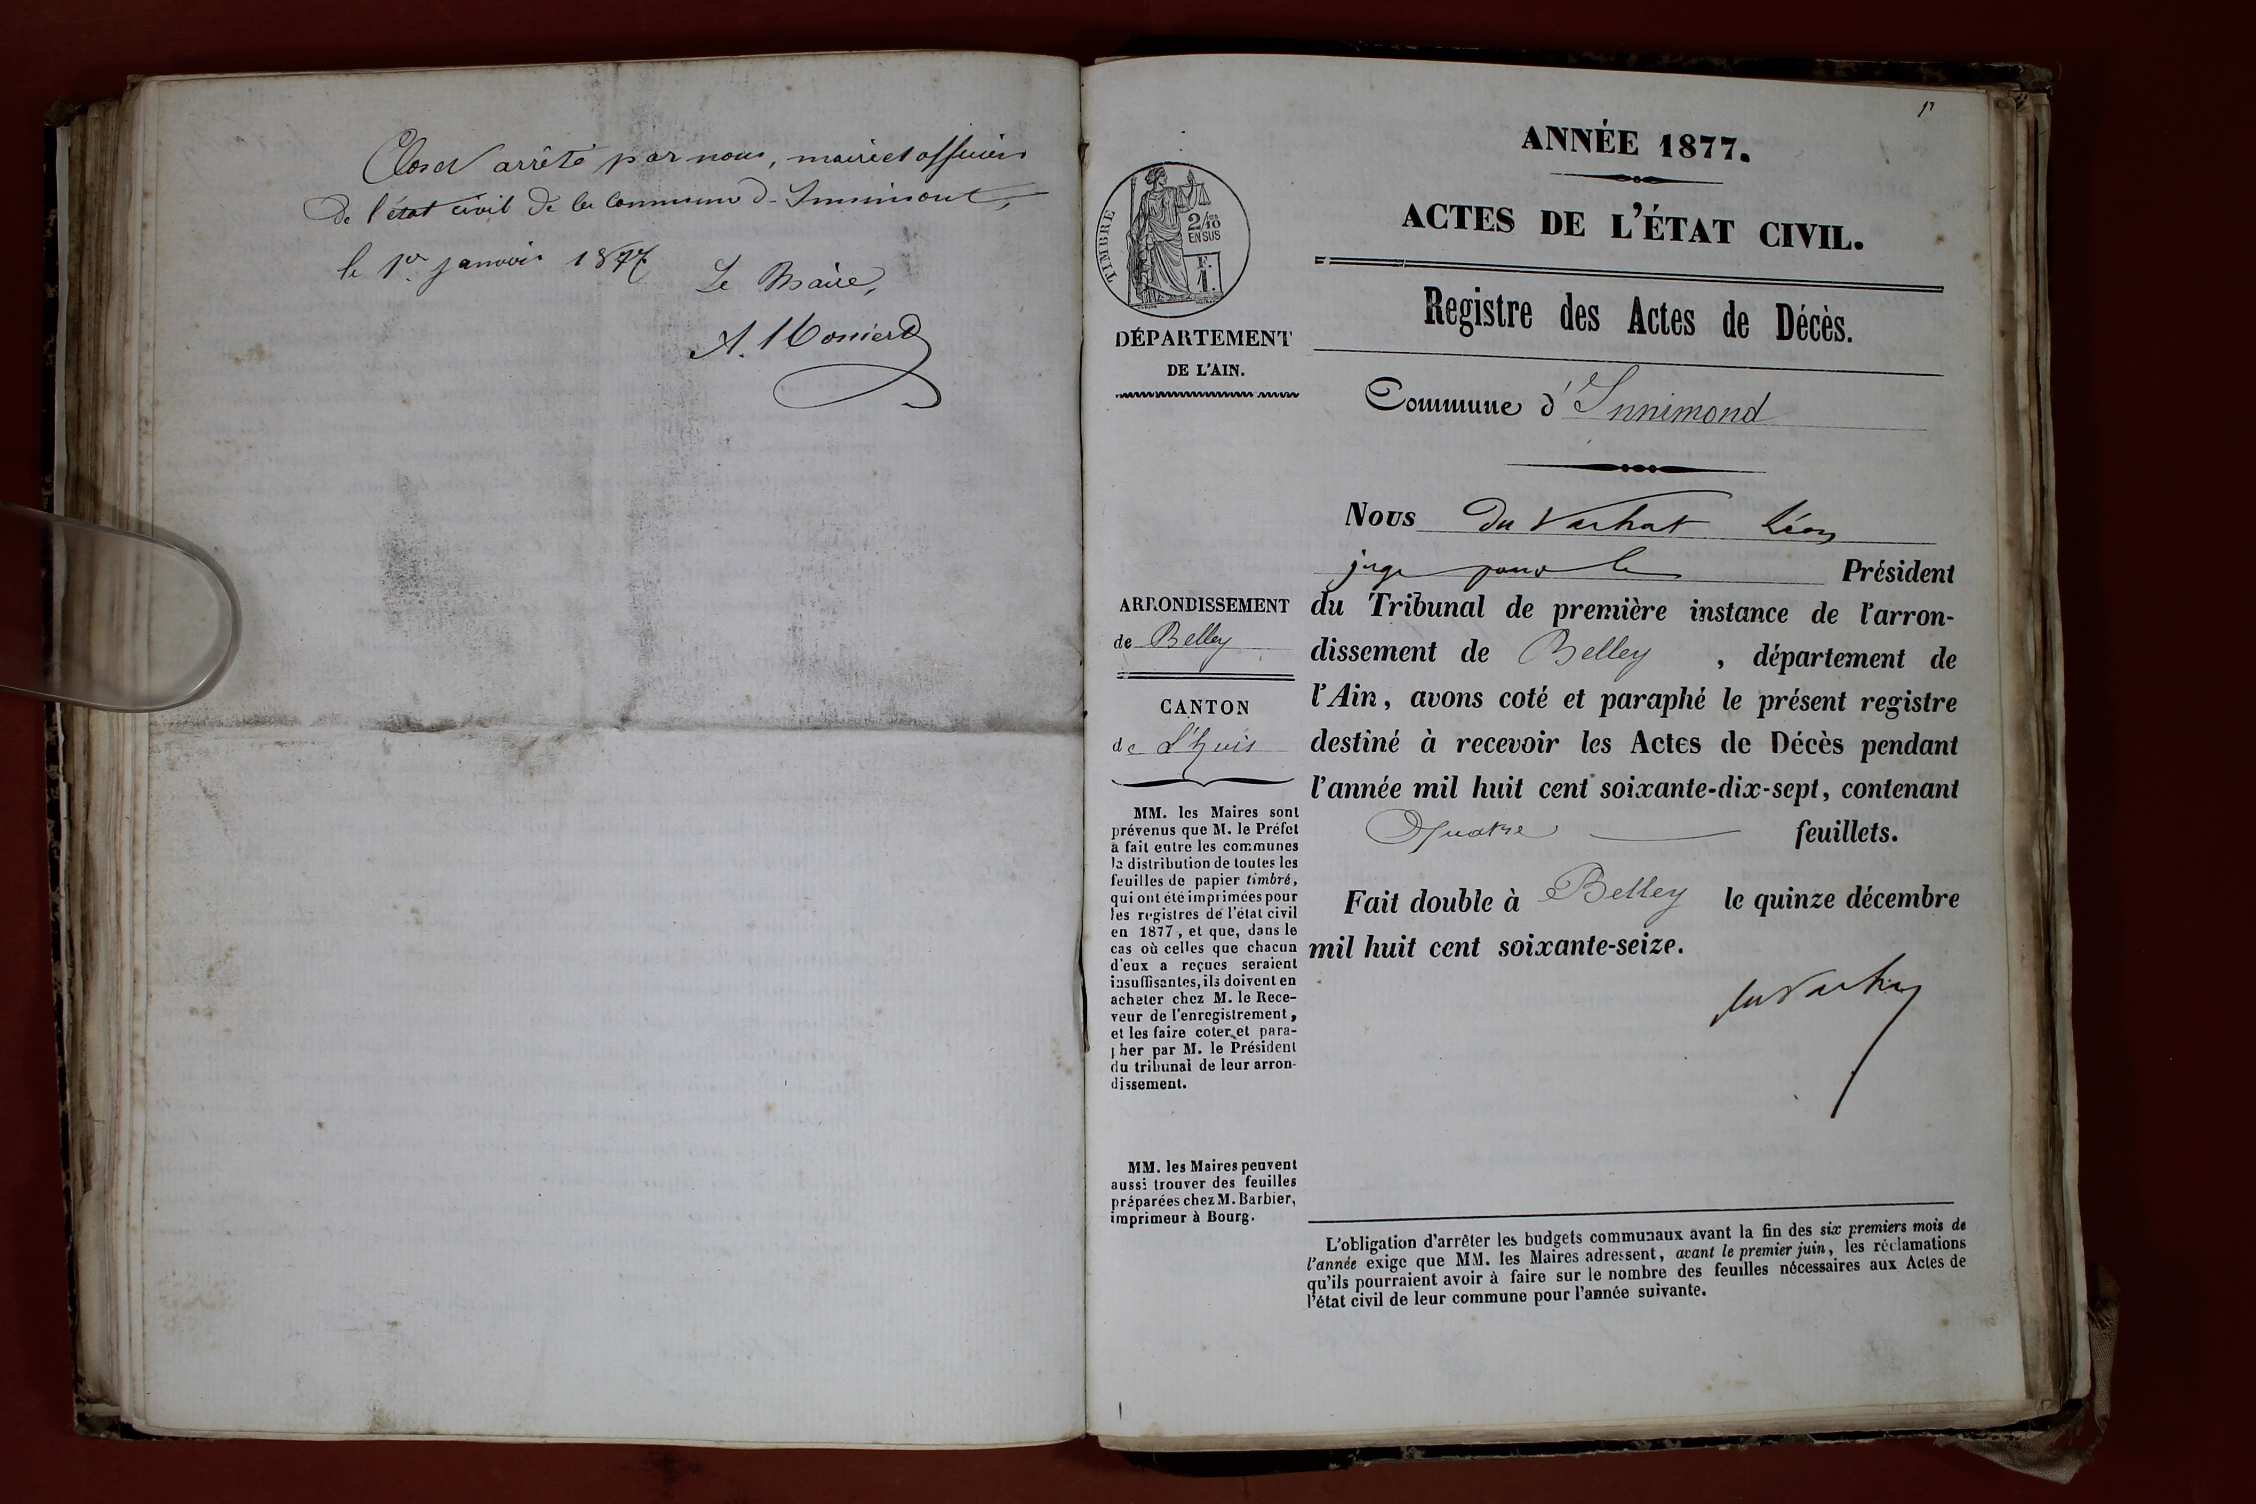 Clos et arrêté par nous, maire et officier
de l'état civil de la commune d'Innimont,
le 1er janvier 1877
Le Maire,
A. Monierd
1r
ANNÉE 1877.
ACTES DE L'ÉTAT CIVIL.
TIMBRE
2/10
EN SUS
F.
1.
Registre des Actes de Décès.
DÉPARTEMENT
DE L'AIN.
Commune d'Innimond
Nous du Vachat Léon
juge pour le Président
du Tribunal de première instance de l'arron-
dissement de Belley, département de
l'Ain, avons coté et paraphé le présent registre
destiné à recevoir les Actes de Décès pendant
l'année mil huit cent soixante-dix-sept, contenant
Quatre feuillets.
Fait double à Belley le quinze décembre
mil huit cent soixante-seize.
du Vachat
ARRONDISSEMENT
de Belley
CANTON
de L'huis
MM. les Maires sont
prévenus que M. le Préfet
a fait entre les communes
la distribution de toutes les
feuilles de papier timbré,
qui ont été imprimées pour
les registres de l'état civil
en 1877, et que, dans le
cas où celles que chacun
d'eux a reçues seraient
insuffisantes, ils doivent en
acheter chez M. le Rece-
veur de l'enregistrement,
et les faire coter et para-
pher par M. le Président
du tribunal de leur arron-
dissement.
MM. les Maires peuvent
aussi trouver des feuilles
préparées chez M. Barbier,
imprimeur à Bourg.
L'obligation d'arrêter les budgets communaux avant la fin des six premiers mois de
l'année exige que MM. les Maires adressent, avant le premier juin, les réclamations
qu'ils pourraient avoir à faire sur le nombre des feuilles nécessaires aux Actes de
l'état civil de leur commune pour l'année suivante.